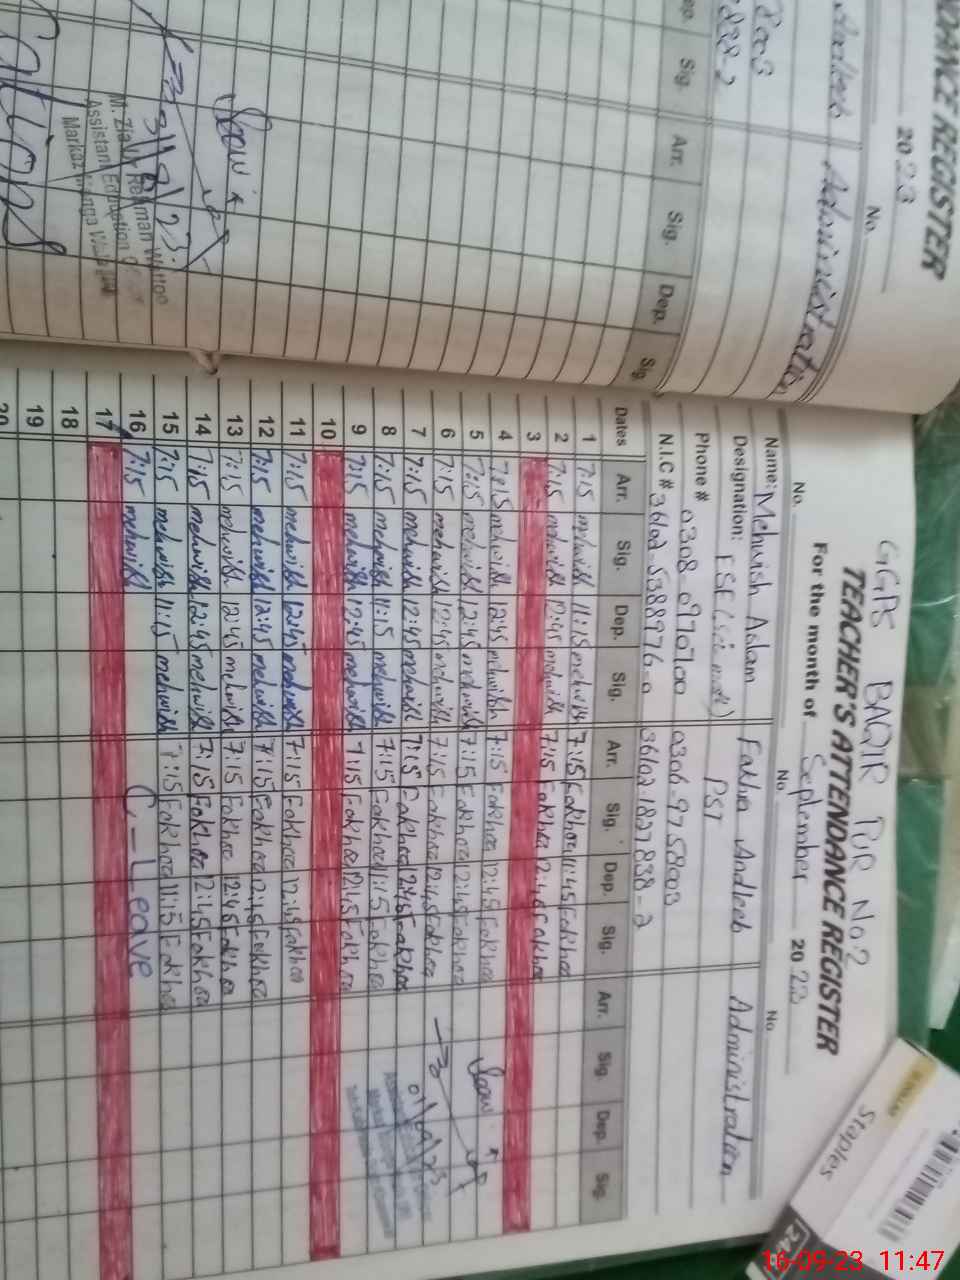 DANCE REGISTER
2023
No.
Andleeb Administration
8003
838-2
ep. Sig. Arr. Sig. Dep. Sig
Seen
31/8/23
M. Zia Ur Rehman Wattoo
Assistant Education
Markaz
GGPS BAQIR PUR No.2
TEACHER'S ATTENDANCE REGISTER
For the month of September 2023
No. No. No.
Name: Mehwish Aslam Fakhra Andleeb Administration
Designation: ESE (Sci math) PST
Phone # 0308-0970700 0306-9758003
N.I.C # 36102 5388976-0 36102 1827838-2
Dates Arr. Sig. Dep. Sig. Arr. Sig. Dep. Sig. Arr. Sig. Dep. Sig.
1 7:15 mehwish 11:15 mehwish 7:15 Fakhra 11:45 Fakhra
2 7:15 mehwish 12:45 mehwish 7:15 Fakhra 12:45 Fakhra
3
4 7:15 mehwish 12:45 mehwish 7:15 Fakhra 12:45 Fakhra
5 7:15 mehwish 12:45 mehwish 7:15 Fakhra 12:45 Fakhra Seen
6 7:15 mehwish 12:45 mehwish 7:15 Fakhra 12:45 Fakhra
7 7:15 mehwish 12:45 mehwish 7:15 Fakhra 12:45 Fakhra 01/09/23
8 7:15 mehwish 11:15 mehwish 7:15 Fakhra 11:15 Fakhra
9 7:15 mehwish 12:45 mehwish 7:15 Fakhra 12:45 Fakhra
10
11 7:15 mehwish 12:45 mehwish 7:15 Fakhra 12:45 Fakhra
12 7:15 mehwish 12:45 mehwish 7:15 Fakhra 12:45 Fakhra
13 7:15 mehwish 12:45 mehwish 7:15 Fakhra 12:45 Fakhra
14 7:15 mehwish 12:45 mehwish 7:15 Fakhra 12:45 Fakhra
15 7:15 mehwish 11:15 mehwish 7:15 Fakhra 11:15 Fakhra
16 7:15 mehwish C-Leave
17
18
19
20
DOLLAR
Staples
24/
16-09-23 11:47